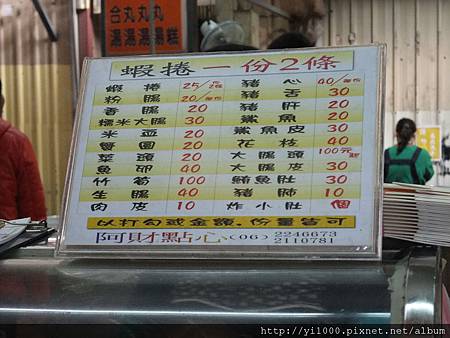 合丸丸
湯湯湯糕
蝦捲一份2條
蝦捲 25/2條
粉腸 20/份
香腸 20
糯米大腸 30
米血 20
蟹圓 20
菜頭 20
魚卵 40
竹筍 100
生腸 40
肉皮 10
豬心 40/份
豬舌 30
豬肝 20
鯊魚 20
鯊魚皮 30
花枝 20
大腸頭 100元起
鮪魚肚 30
豬肺 10
炸小肚 個
以打勾或金額.份量皆可
阿財點心(06) 2246673
2110781
http://yi1000.pixnet.net/album